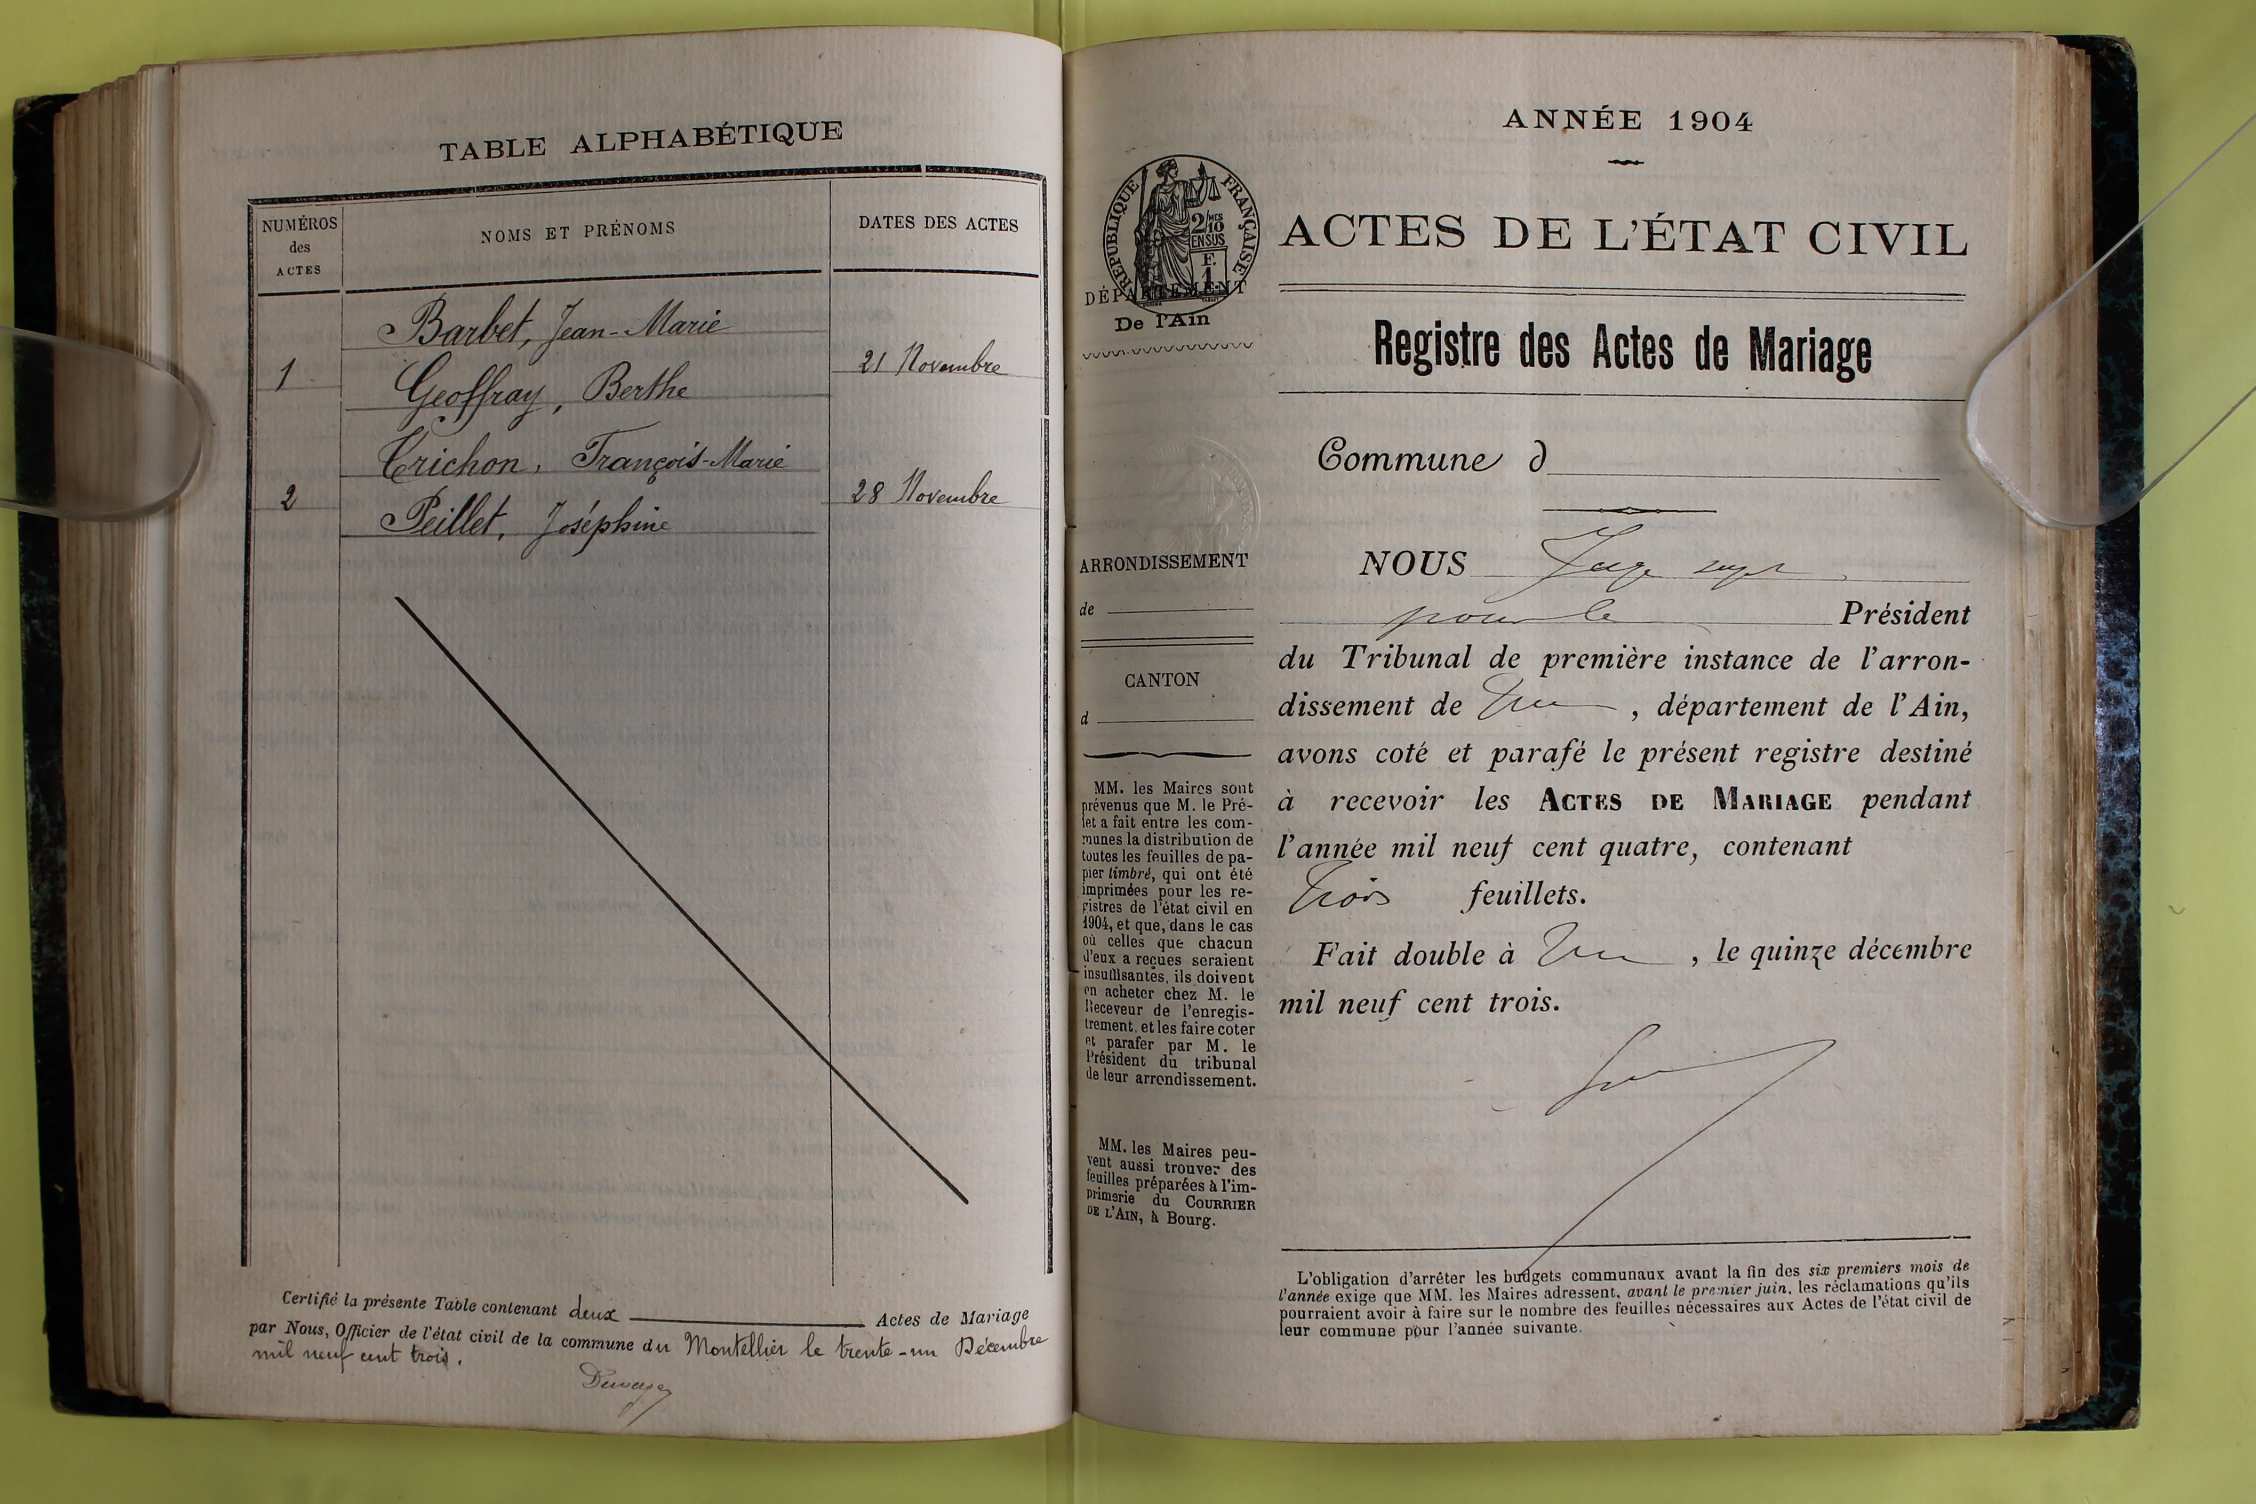 TABLE ALPHABÉTIQUE
NUMÉROS
des
ACTES
NOMS ET PRÉNOMS
DATES DES ACTES
Barbet, Jean-Marie
1
21 Novembre
Geoffray, Berthe
Trichon, François-Marie
2
28 Novembre
Peillet, Joséphine
Certifié la présente Table contenant deux Actes de Mariage
par Nous, Officier de l'état civil de la commune du Montellier le trente-un Décembre
mil neuf cent trois.
ANNÉE 1904
RÉPUBLIQUE FRANÇAISE
2/10
EN SUS
F.
1
DÉPARTEMENT
De l'Ain
ARRONDISSEMENT
de
CANTON
d
MM. les Maires sont
prévenus que M. le Pré-
fet a fait entre les com-
munes la distribution de
toutes les feuilles de pa-
pier timbré, qui ont été
imprimées pour les re-
gistres de l'état civil en
1904, et que, dans le cas
où celles que chacun
d'eux a reçues seraient
insuffisantes, ils doivent
en acheter chez M. le
Receveur de l'enregis-
trement, et les faire coter
et parafer par M. le
Président du tribunal
de leur arrondissement.
MM. les Maires peu-
vent aussi trouver des
feuilles préparées à l'im-
primerie du COURRIER
DE L'AIN, à Bourg.
ACTES DE L'ÉTAT CIVIL
Registre des Actes de Mariage
Commune d
NOUS Juge
pour le Président
du Tribunal de première instance de l'arron-
dissement de , département de l'Ain,
avons coté et parafé le présent registre destiné
à recevoir les ACTES DE MARIAGE pendant
l'année mil neuf cent quatre, contenant
trois feuillets.
Fait double à , le quinze décembre
mil neuf cent trois.
L'obligation d'arrêter les budgets communaux avant la fin des six premiers mois de
l'année exige que MM. les Maires adressent, avant le premier juin, les réclamations qu'ils
pourraient avoir à faire sur le nombre des feuilles nécessaires aux Actes de l'état civil de
leur commune pour l'année suivante.